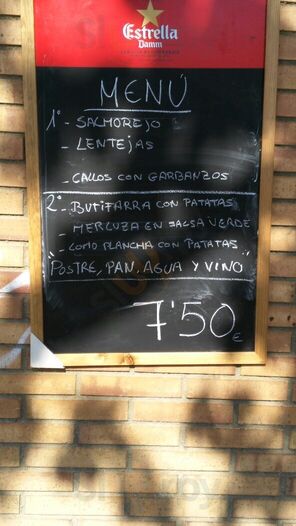 Estrella
Damm
MENÚ
1º - SALMOREJO
- LENTEJAS
- CALLOS CON GARBANZOS
2º - BUTIFARRA CON PATATAS
- MERLUZA EN SALSA VERDE
- LOMO PLANCHA CON PATATAS
"POSTRE, PAN, AGUA Y VINO
7'50 €